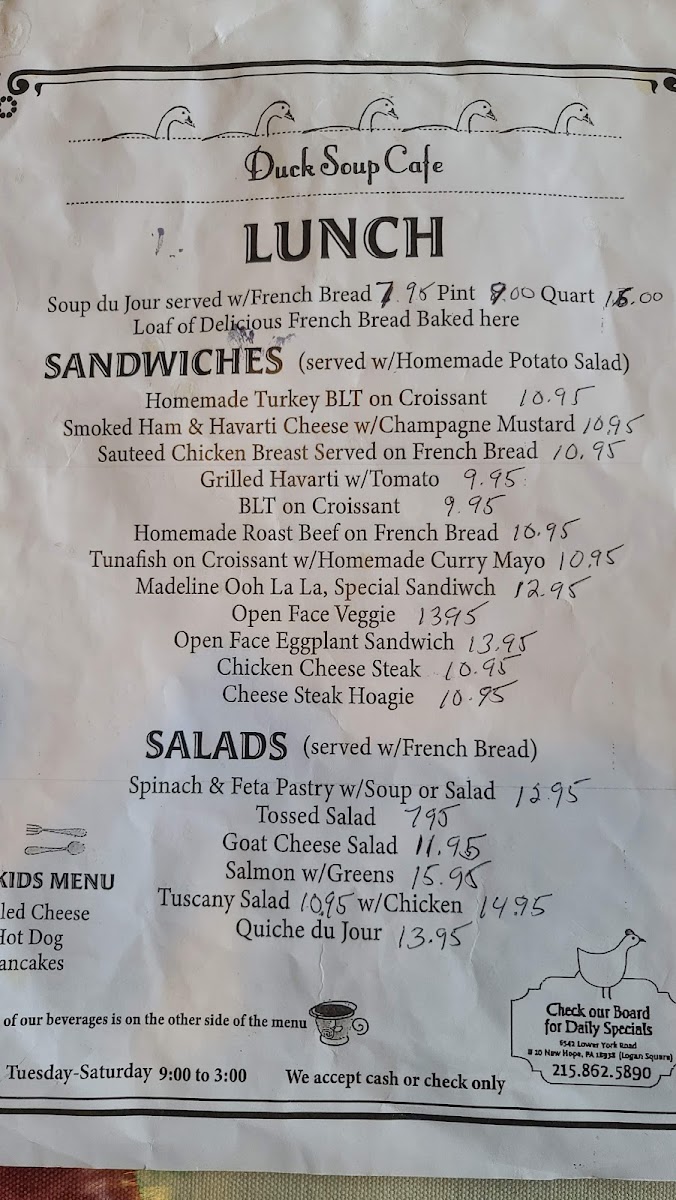 Duck Soup Cafe
LUNCH
Soup du Jour served w/French Bread 7.95 Pint 9.00 Quart 15.00
Loaf of Delicious French Bread Baked here
SANDWICHES (served w/Homemade Potato Salad)
Homemade Turkey BLT on Croissant 10.95
Smoked Ham & Havarti Cheese w/Champagne Mustard 10.95
Sauteed Chicken Breast Served on French Bread 10.95
Grilled Havarti w/Tomato 9.95
BLT on Croissant 9.95
Homemade Roast Beef on French Bread 10.95
Tunafish on Croissant w/Homemade Curry Mayo 10.95
Madeline Ooh La La, Special Sandiwch 12.95
Open Face Veggie 13.95
Open Face Eggplant Sandwich 13.95
Chicken Cheese Steak 10.95
Cheese Steak Hoagie 10.95
SALADS (served w/French Bread)
Spinach & Feta Pastry w/Soup or Salad
Tossed Salad 795
Goat Cheese Salad 11.95
Salmon w/Greens 15.95
Tuscany Salad 10.95 w/Chicken 14.95
Quiche du Jour 13.95
KIDS MENU
led Cheese
Hot Dog
ancakes
of our beverages is on the other side of the menu
Tuesday-Saturday 9:00 to 3:00 We accept cash or check only
Check our Board
for Daily Specials
6542 Lower York Road
# 20 New Hope, PA 18938 (Logan Square)
215.862.5890